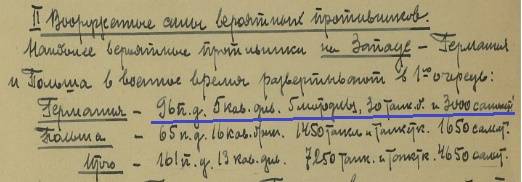 II Вооруженные силы вероятных противников.
Наиболее вероятные противники на Западе – Германия
и Польша в военное время развертывают в 1-ю очередь:
Германия – 96 п.д. 5 кав. див. 5 мотодив, 30 танк. б. и 3000 самол.
Польша – 65 п.д. 16 кав. бриг. 1450 танк. и танкетк. 1650 самол.
Итого – 161 п.д. 13 кав. див. 7250 танк. и танкетк. 4650 самол.